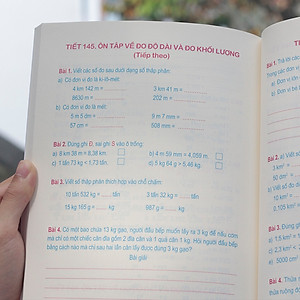 TIẾT 145. ÔN TẬP VỀ ĐO ĐỘ DÀI VÀ ĐO KHỐI LƯỢNG
(Tiếp theo)
Bài 1. Viết các số đo sau dưới dạng số thập phân:
a) Có đơn vị đo là ki-lô-mét:
4 km 142 m = 3 km 41 m =
8630 m = 202 m =
b) Có đơn vị đo là mét:
5 m 5 dm = 9 m 7 mm =
57 cm = 508 mm =
Bài 2. Đúng ghi Đ, sai ghi S vào ô trống:
a) 8 km 38 m = 8,38 km b) 4 m 59 mm = 4,059 m
c) 1 tấn 73 kg = 1,73 tấn d) 5 kg 54 g = 5,46 kg
Bài 3. Viết số thập phân thích hợp vào chỗ chấm:
10 tấn 532 kg = tấn 3 tấn 32 kg = tấn
15 kg 165 g = kg 987 g = kg
Bài 4. Có một bao chứa 13 kg gạo, người đầu bếp muốn lấy ra 3 kg để nấu cơm
mà chỉ có một chiếc cân đĩa gồm 2 đĩa cân và 1 quả cân 1 kg. Hỏi người đầu bếp
bằng cách nào mà chỉ sau hai lần cân lấy được đúng 3 kg gạo?
Bài giải
Bài 1.
Bài 2. a) Viết
Bài 3. Đúng
Bài 4.